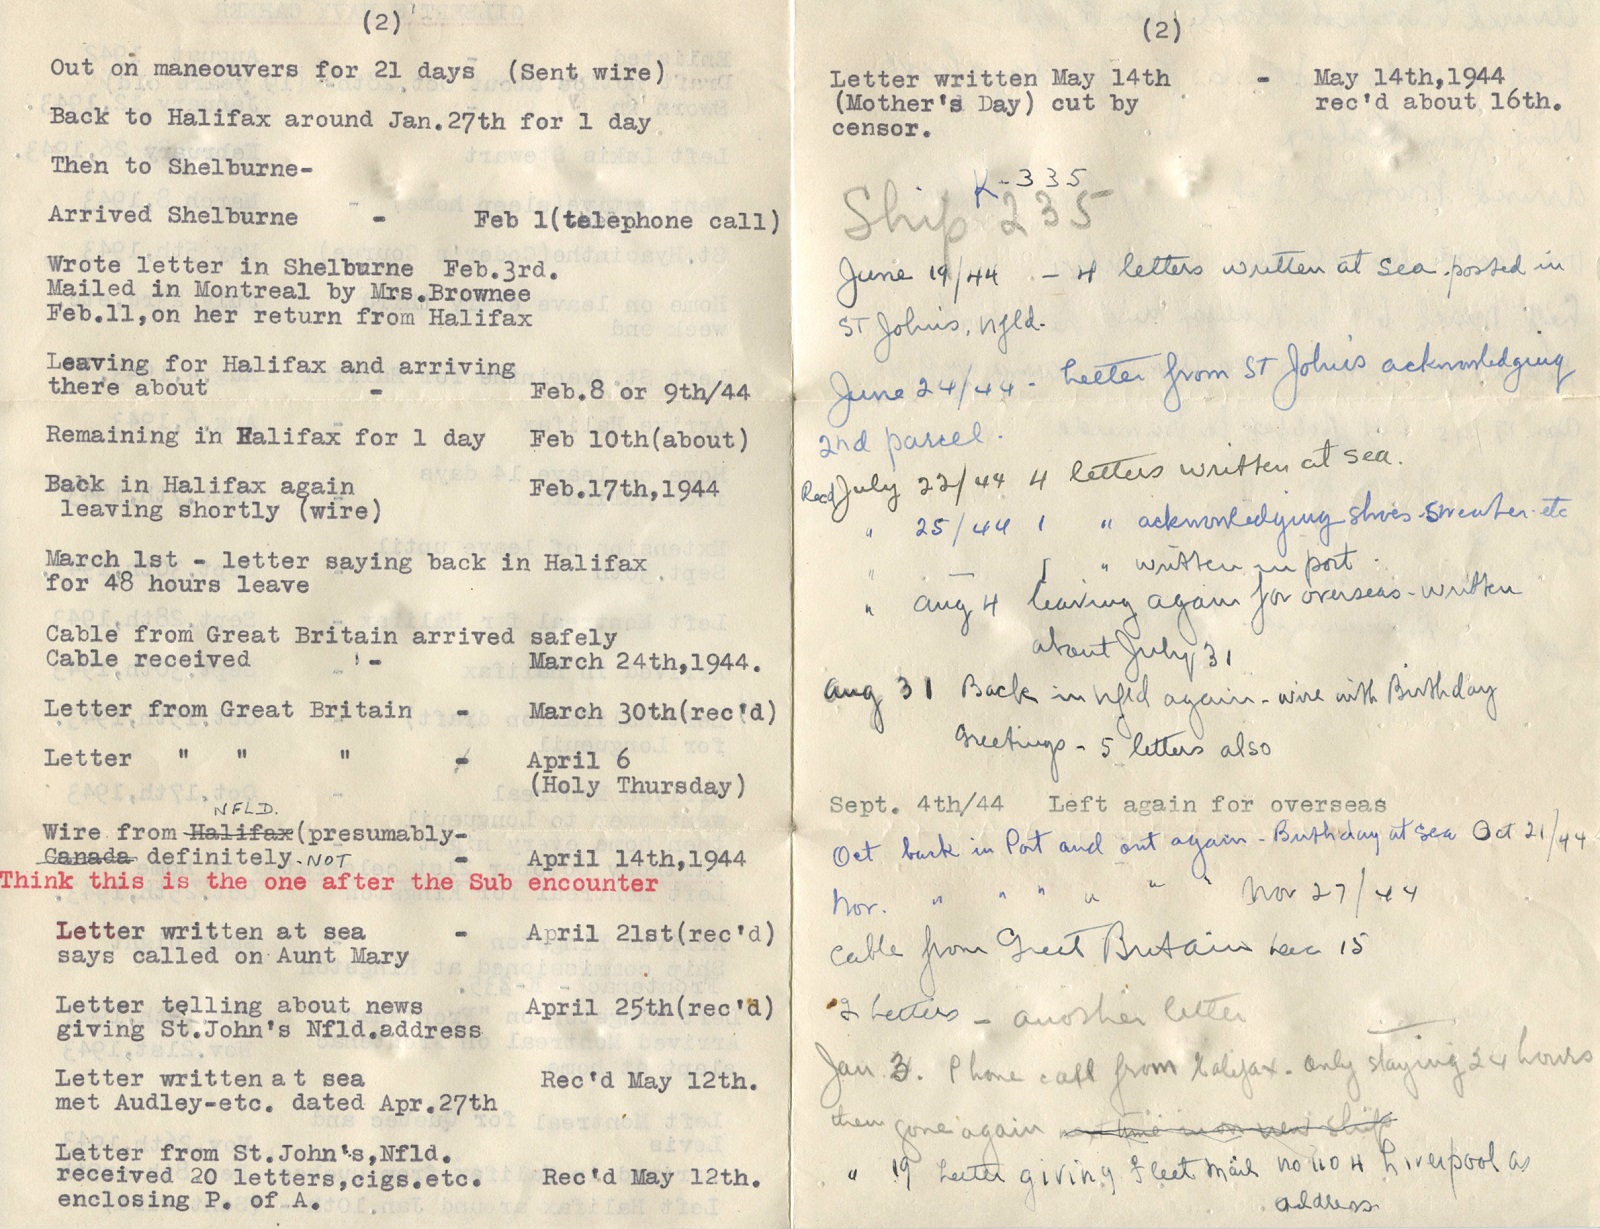 (2)
Out on maneouvers for 21 days (Sent wire)
Back to Halifax around Jan.27th for 1 day
Then to Shelburne-
Arrived Shelburne - Feb 1(telephone call)
Wrote letter in Shelburne Feb.3rd.
Mailed in Montreal by Mrs.Brownee
Feb.11,on her return from Halifax
Leaving for Halifax and arriving
there about - Feb.8 or 9th/44
Remaining in Halifax for 1 day Feb 10th(about)
Back in Halifax again Feb.17th,1944
leaving shortly (wire)
March 1st - letter saying back in Halifax
for 48 hours leave
Cable from Great Britain arrived safely
Cable received - March 24th,1944.
Letter from Great Britain - March 30th(rec'd)
Letter " " " - April 6
(Holy Thursday)
NFLD.
Wire from Halifax(presumably-
Canada definitely-NOT - April 14th,1944
Think this is the one after the Sub encounter
Letter written at sea - April 21st(rec'd)
says called on Aunt Mary
Letter telling about news April 25th(rec'd)
giving St.John's Nfld.address
Letter written at sea Rec'd May 12th.
met Audley-etc. dated Apr.27th
Letter from St.John's,Nfld.
received 20 letters,cigs.etc. Rec'd May 12th.
enclosing P. of A.
(2)
Letter written May 14th - May 14th,1944
(Mother's Day) cut by rec'd about 16th.
censor.
K-335
Ship 235
June 19/44 - 4 letters written at sea-posted in
ST John's, Nfld.
June 24/44 - Letter from ST John's acknowledging
2nd parcel.
Recd July 22/44 4 letters written at sea.
" 25/44 1 " acknowledging shoes-Sweater-etc
" — 1 " written in port.
" Aug 4 leaving again for overseas-written
about July 31
Aug 31 Back in Nfld again-wire with Birthday
Greetings - 5 letters also
Sept. 4th/44 Left again for overseas
Oct back in Port and out again-Birthday at sea Oct 21/44
Nov. " " " " " " Nov 27/44
Cable from Great Britain Dec 15
2 Letters - another letter
Jan 3. Phone call from Halifax-only staying 24 hours
then gone again
" 19 Letter giving Fleet Mail no 1104 Liverpool as
address